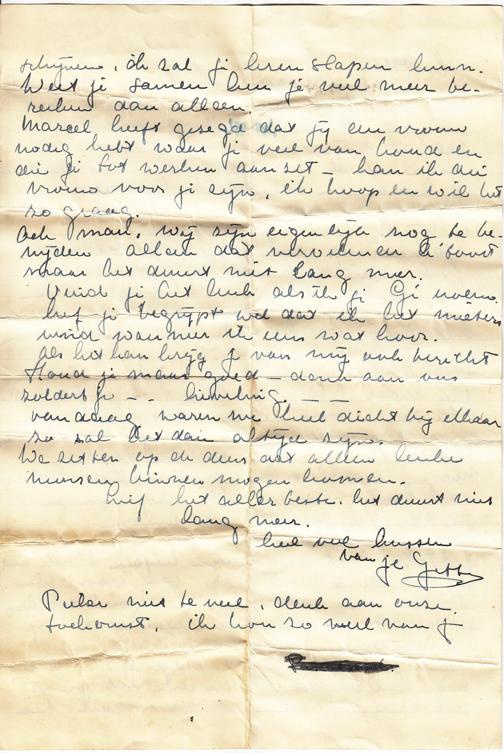 schijnen, ik zal je leren slapen hum.
Weet je samen ben je veel meer be-
reiken dan alleen.
Marcel heeft gezegd dat jij een vrouw
nodig hebt waar je veel van houd en
die je tot werken aanzet - kan ik die
vrouw voor je zijn, ik hoop en wil het
zo graag.
Och man, wij zijn eigenlijk nog te be-
nijden alleen dat
maar het duurt niet lang meer.
Vind je het leuk als ik je Gé noem.
lief je begrijpt wel dat ik het
vind wanneer ik eens wat hoor.
Als het kan krijg je van mij ook bericht
Houd je maar goed - denk aan ons
zoldertje - - lieveling. - -
vandaag waren we heel dicht bij elkaar
zo zal het dan altijd zijn.
We zetten op de deur dat alleen leuke
mensen binnen mogen komen.
Lief het aller beste. het duurt niet
lang meer.
heel veel kussen
van je
Pieker niet te veel, denk aan onze
toekomst, ik hou zo veel van je